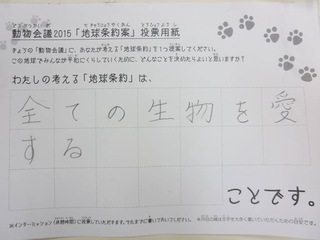 動物会議2015「地球条約案」投票用紙
きょうの「動物会議」に、あなたが考える「地球条約」を1つ提案してください。
この地球でみんなが平和にくらしていくために、どんなことを決めたらよいと思いますか?
わたしの考える「地球条約」は、
全ての生物を愛
する
ことです。
※インターミッション(休憩時間)に投票していただきます。それまでに書いておいてください。